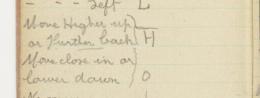 - - - - Left L
Move Higher up
or Further back H
Move close in or
lower down O